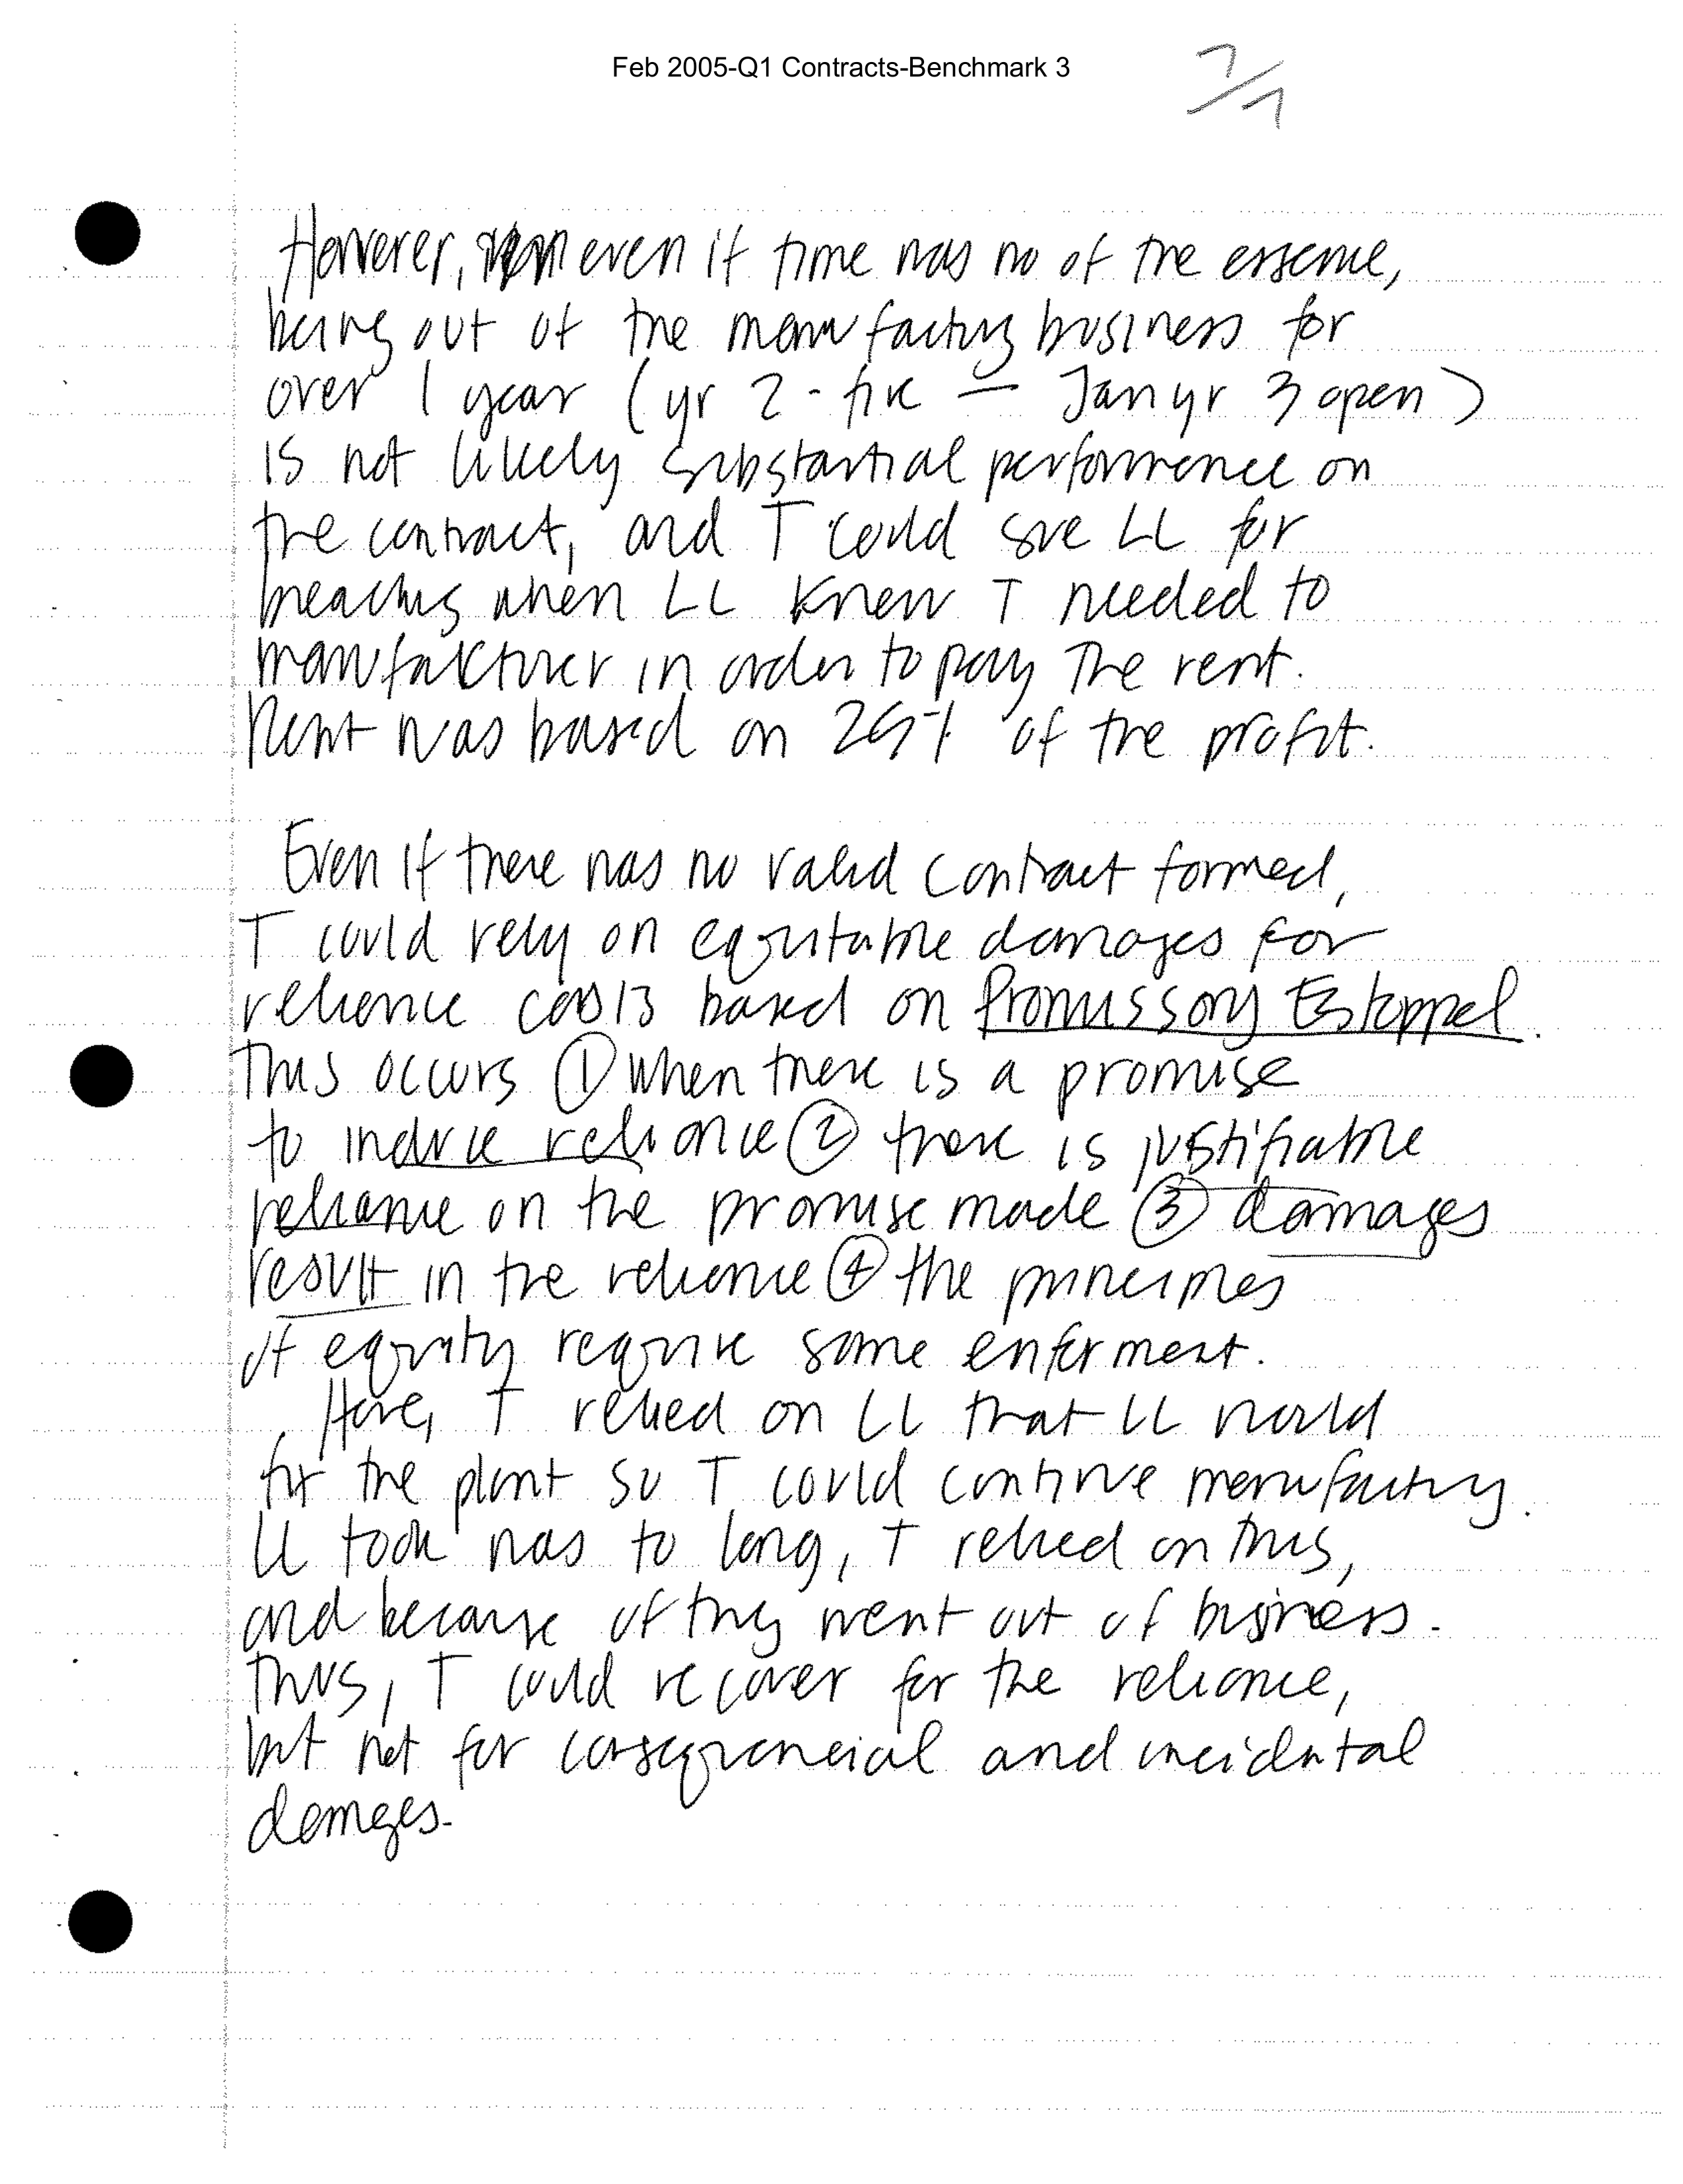 Feb 2005-Q1 Contracts-Benchmark 3
7/7
However, even if time was no of the essence,
being out of the manufactury business for
over 1 year (yr 2 - fire — Jan yr 3 open)
is not likely substantial performance on
the contract, and T could sue LL for
breaching when LL knew T needed to
manufakturer in order to pay the rent.
Rent was based on 25% of the profit.
Even if there was no valid contract formed,
T could rely on equitable damages for
relience costs based on Promissory Estoppel.
This occurs ① when there is a promise
to induce reliance ② there is justifiable
reliance on the promise made ③ damages
result in the relience ④ the principles
of equity require some enforment.
Here, T relied on LL that LL would
fix the plant so T could continue manufactury.
LL took was to long, T relied on this,
and because of this went out of business.
Thus, T could recover for the relience,
but not for consequencial and incidntal
damges.